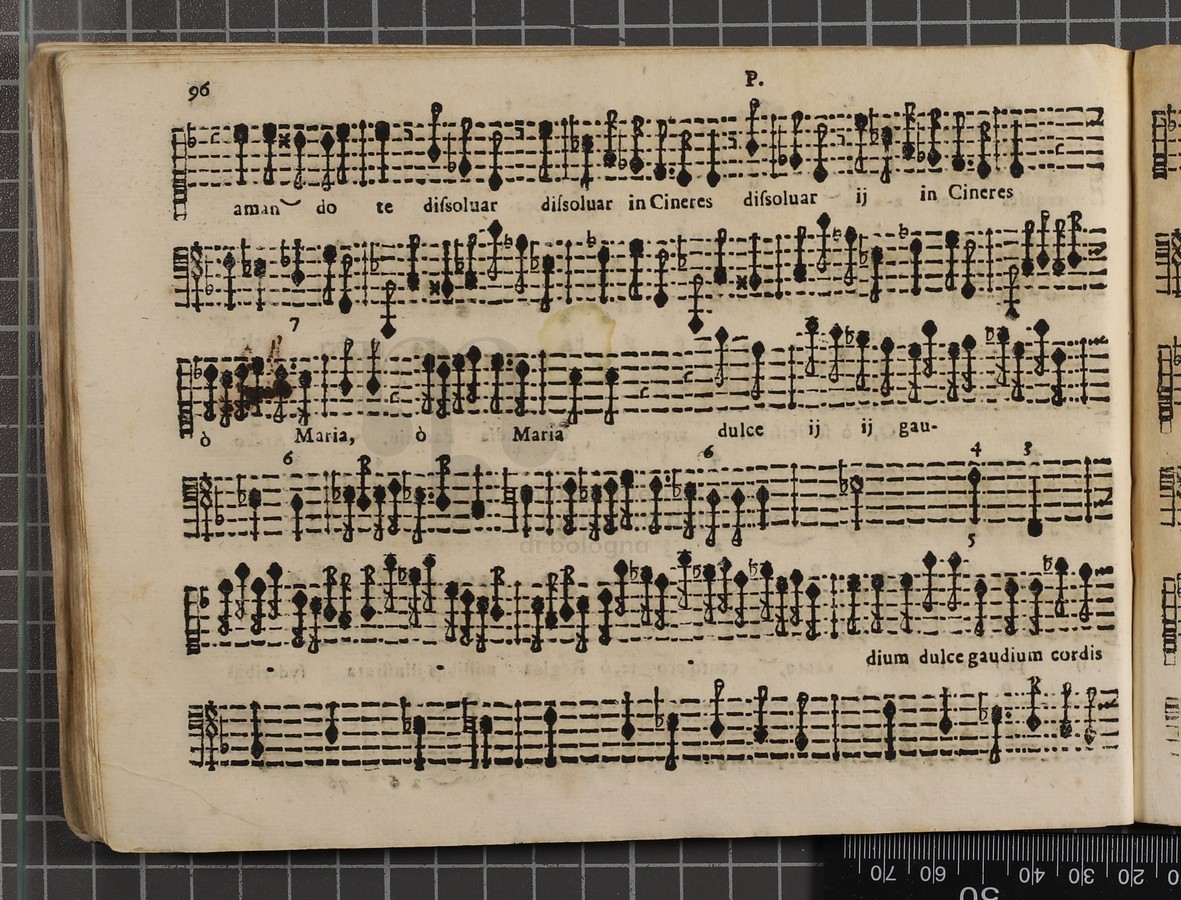 96
P.
aman do te dissoluar dissoluar in Cineres dissoluar ij in Cineres
7
ò Maria, ò Maria dulce ij ij gau-
6 6 4 3
5
dium dulce gaudium cordis
di bologna
70 60 50 40 30 20 10